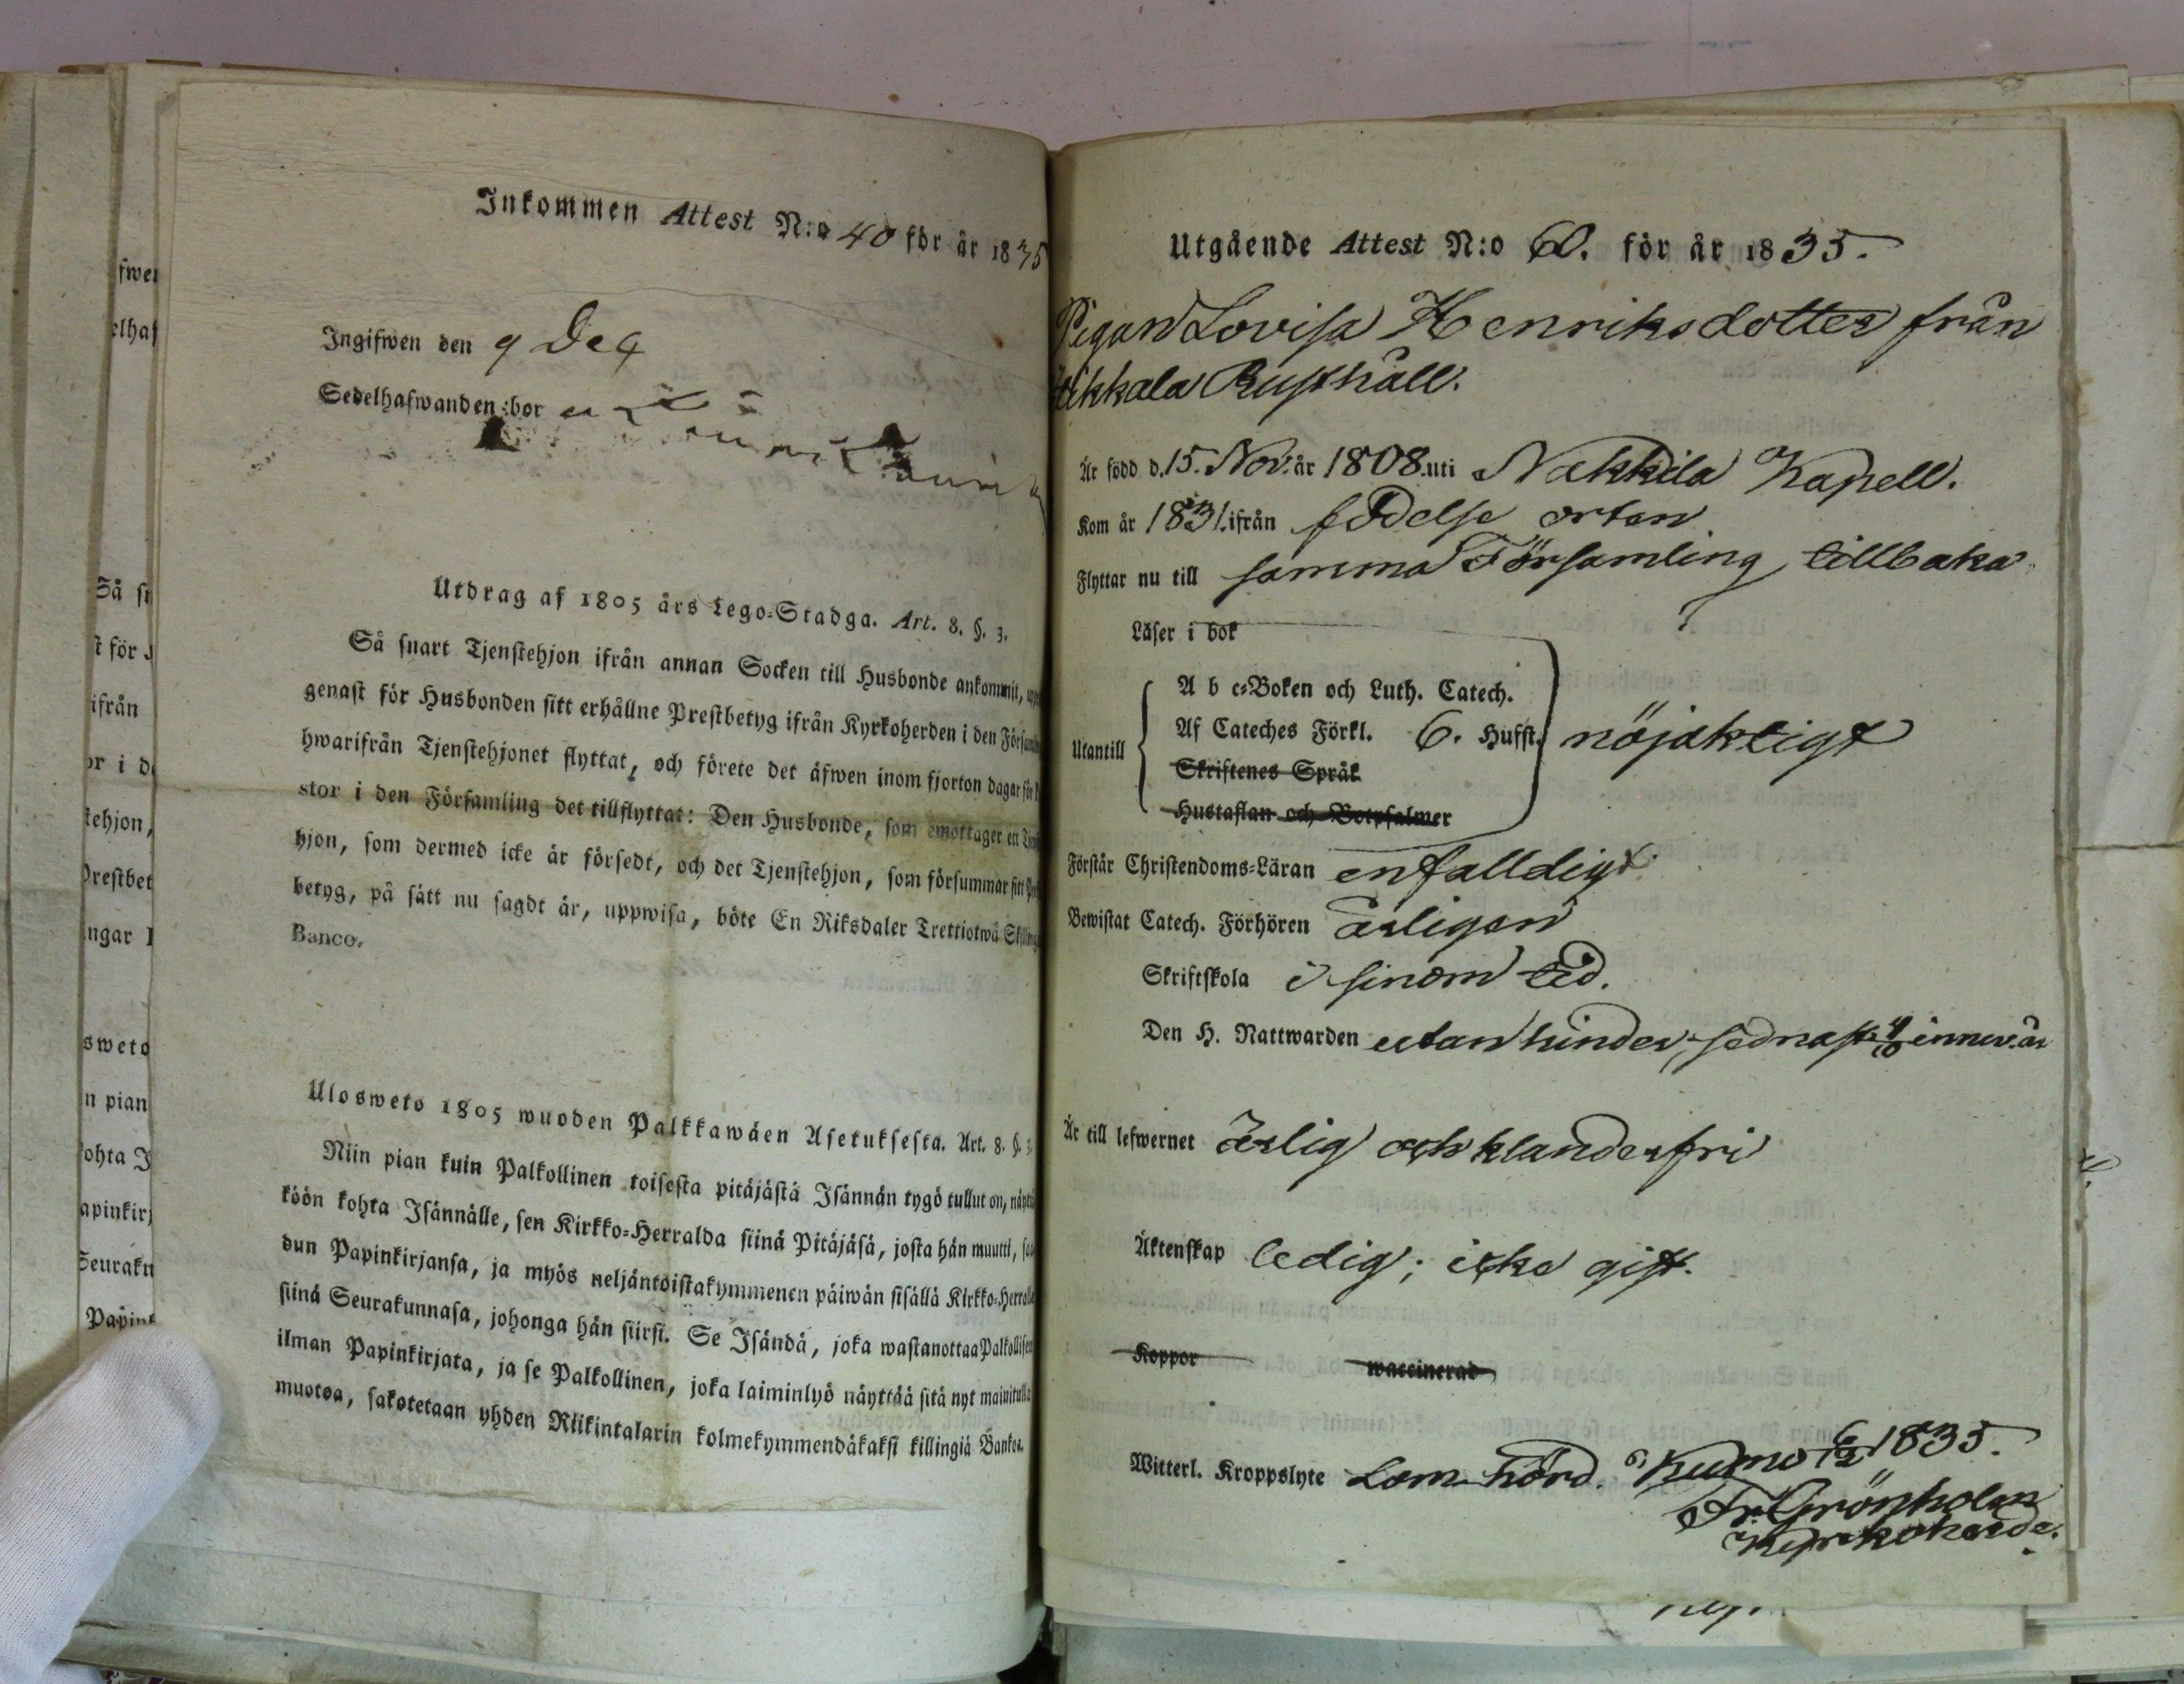 Inkommen Attest N:o 40 för år 1835
Ingifwen den 9 Dec
Sedelhafwanden bor
Utdrag af 1805 års Lego-Stadga. Art. 8. §. 3.
Så snart Tjenstehjon ifrån annan Socken till Husbonde ankommit,
genast för Husbonden sitt erhållne Prestbetyg ifrån Kyrkoherden i den
hwarifrån Tjenstehjonet flyttat, och förete det äfwen inom fjorton dagar för
stor i den Församling det tillflyttat: Den Husbonde, som emottager ett
hjon, som dermed icke är försedt, och det Tjenstehjon, som försummar sitt
betyg, på sätt nu sagdt är, uppwisa, böte En Riksdaler Trettiotwå
Banco.
Ulosweto 1805 wuoden Palkkawäen Asetuksesta. Art. 8. §. 3.
Niin pian kuin Palkollinen toisesta pitäjästä Isännän tygö tullut on,
köön kohta Isännälle, sen Kirkko-Herralda siinä Pitäjäsä, josta hän muutti,
dun Papinkirjansa, ja myös neljäntoistakymmenen päiwän sisällä
siinä Seurakunnasa, johonga hän siirsi. Se Isändä, joka wastanottaa
ilman Papinkirjata, ja se Palkollinen, joka laiminlyö näyttää sitä nyt
muotoa, sakotetaan yhden Riikintalarin kolmekymmendäkaksi killingiä Bankoa.
Utgående Attest N:o 60. för år 1835.
Pigan Lovisa Henriksdotter från
Rusthåll.
Är född d. 15. Nov. år 1808. uti Nakkila Kapell.
Kom år 1831. ifrån födelse orten
Flyttar nu till samma Församling tillbaka
Läser i bok
Utantill
A b c-Boken och Luth. Catech.
Af Cateches Förkl. 6. Hufst. nöjaktigt
Skriftenes Språk
Hustaflan och Botpsalmer
Förstår Christendoms-Läran enfalldigt
Bewistat Catech. Förhören årligen
Skriftskola i sinom tid.
Den H. Nattwarden utan hinder, sednast innev. år
Är till lefwernet ärlig och klanderfri
Äktenskap ledig; icke gift.
Koppor waccinerad
Witterl. Kroppslyte Lomhörd. Kumo 6/12 1835.
Fr. Grönholm
Kyrkoherde.